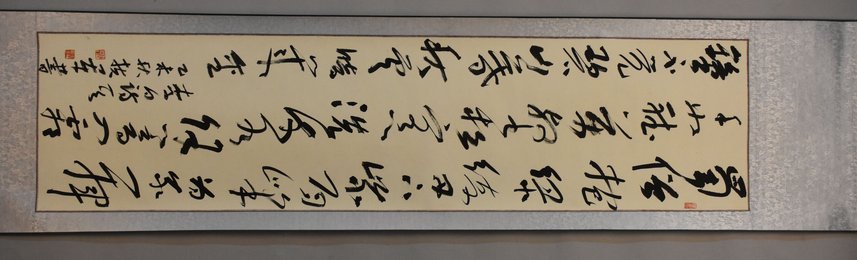 蜀僧抱綠綺西下峨眉峰為我一揮
手如聽萬壑松客心洗流水餘響入霜
鐘不覺碧山暮秋雲暗幾重
李白詩
乙未秋
書